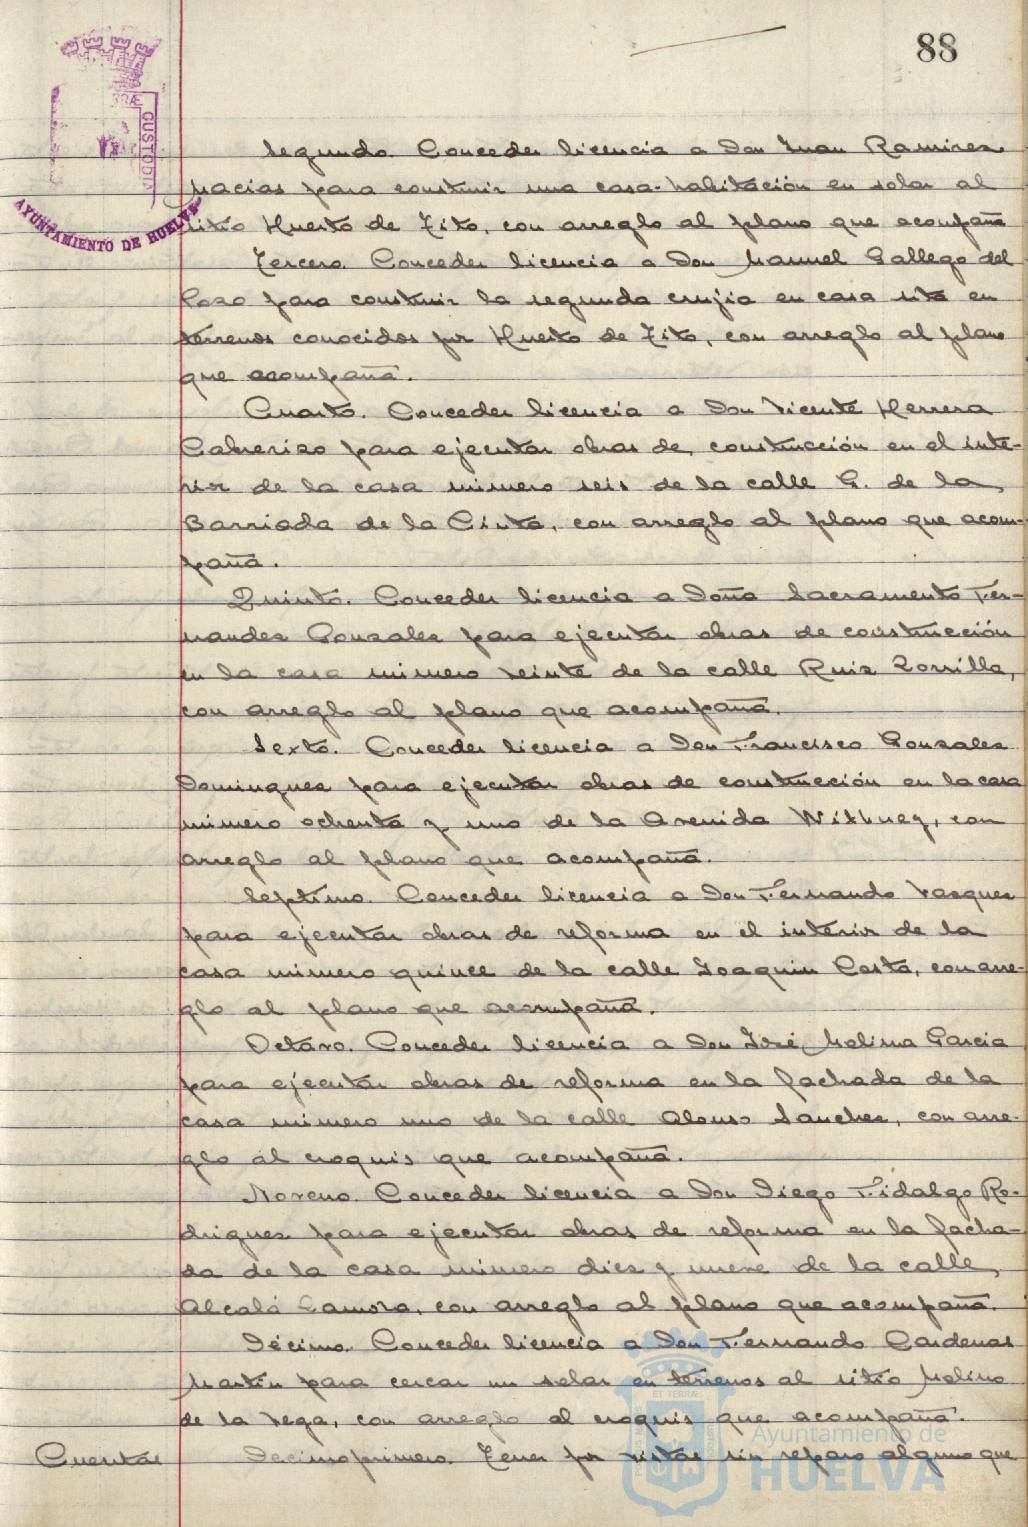 88
CUSTODIA
AYUNTAMIENTO DE HUELVA
Segundo. Conceder licencia a Don Juan Ramirez
Macias para construir una casa-habitación en solar al
sitio Huerto de Tito, con arreglo al plano que acompaña
Tercero. Conceder licencia a Don Manuel Gallego del
Pozo para construir la segunda crujia en casa sita en
terrenos conocidos por Huerto de Tito, con arreglo al plano
que acompaña.
Cuarto. Conceder licencia a Don Vicente Herrera
Cabrerizo para ejecutar obras de construcción en el inte-
rior de la casa número seis de la calle G. de la
Barriada de la Cinta, con arreglo al plano que acom-
paña.
Quinto. Conceder licencia a Doña Sacramento Fer-
nandez Gonzalez para ejecutar obras de construcción
en la casa número veinte de la calle Ruiz Zorrilla,
con arreglo al plano que acompaña.
Sexto. Conceder licencia a Don Francisco Gonzalez
Dominguez para ejecutar obras de construcción en la casa
número ochenta y uno de la Avenida con
arreglo al plano que acompaña.
Septimo. Conceder licencia a Don Fernando Vazquez
para ejecutar obras de reforma en el interior de la
casa número quince de la calle Joaquin Costa, con arre-
glo al plano que acompaña.
Octavo. Conceder licencia a Don José Molina Garcia
para ejecutar obras de reforma en la fachada de la
casa número uno de la calle Alonso Sanchez, con arre-
glo al croquis que acompaña.
Noveno. Conceder licencia a Don Diego Fidalgo Ro-
driguez para ejecutar obras de reforma en la facha-
da de la casa número diez y nueve de la calle
Alcalá Zamora, con arreglo al plano que acompaña.
Décimo. Conceder licencia a Don Fernando Cardenas
Martín para cercar un solar en terrenos al sitio Molino
de la Vega, con arreglo al croquis que acompaña.
Cuentas Decimoprimero. Tener por vistas sin reparo alguno que
Ayuntamiento de
HUELVA